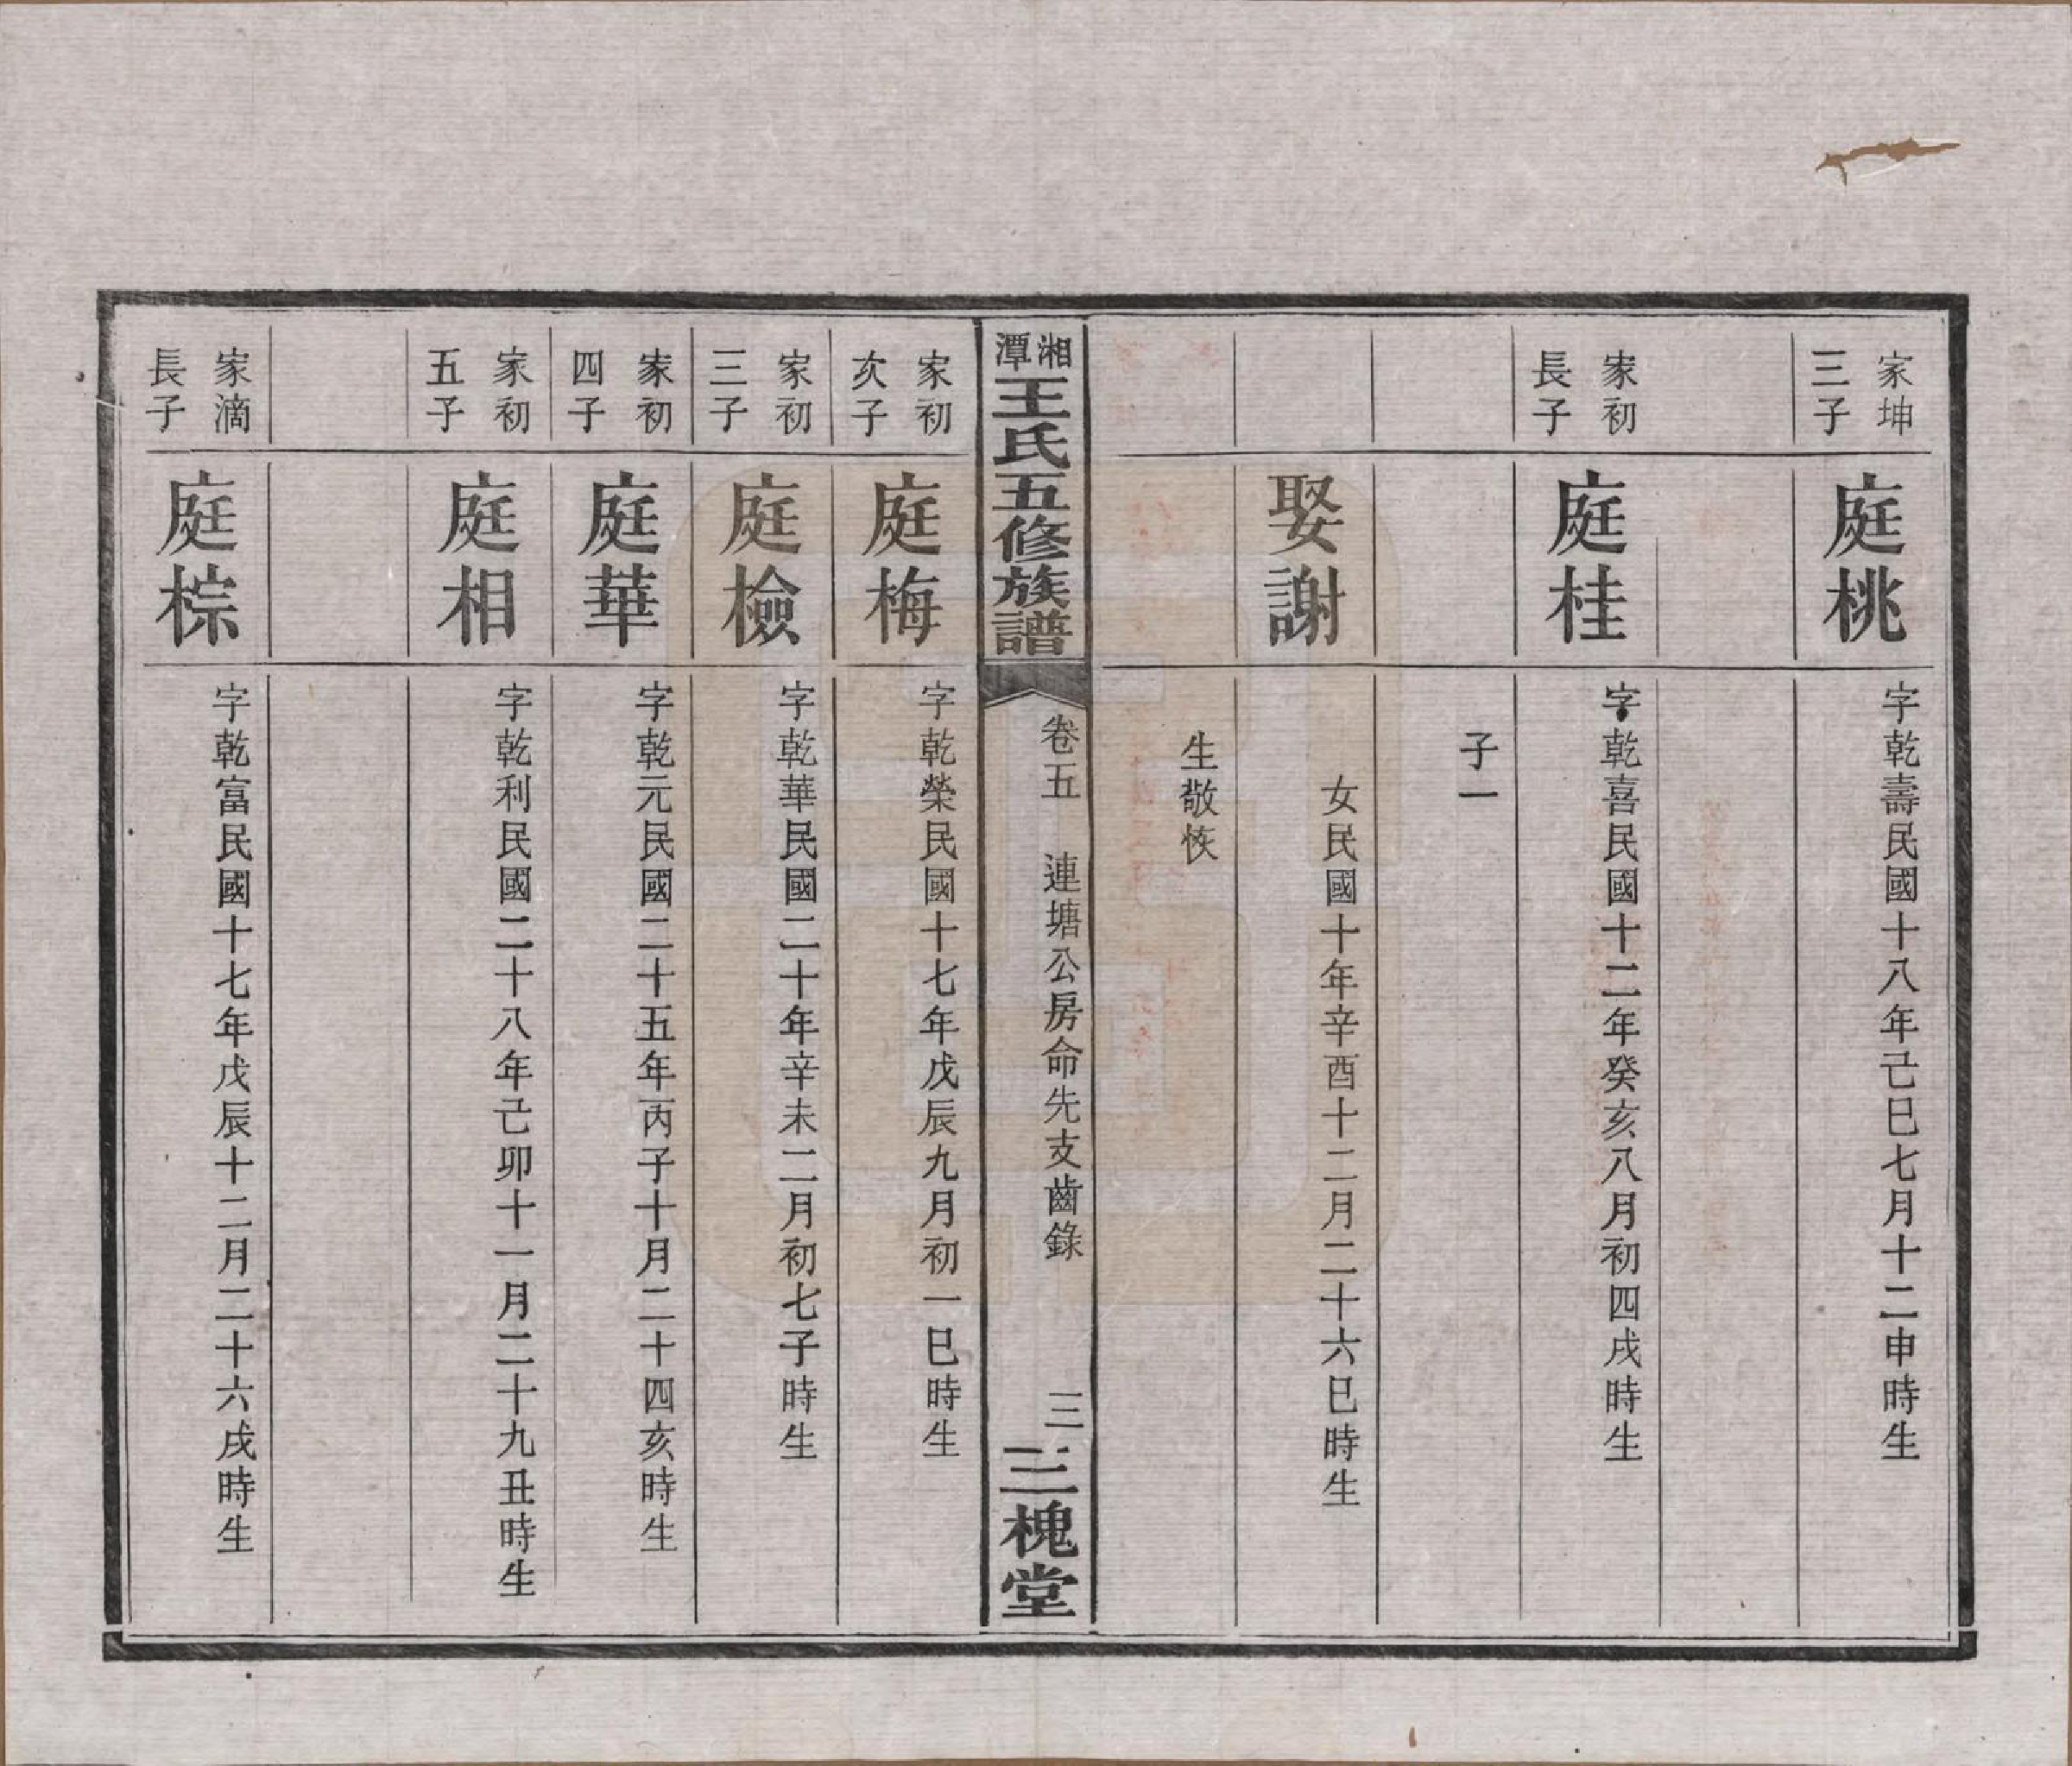 家坤
三子
庭桃
字乾壽民國十八年己巳七月十二申時生
家初
長子
庭桂
字乾喜民國十二年癸亥八月初四戌時生
子一
娶謝
女民國十年辛酉十二月二十六巳時生
生敬恢
湘潭王氏五修族譜
卷五 連塘公房命先支齒錄
三
三槐堂
家初
次子
庭梅
字乾榮民國十七年戊辰九月初一巳時生
家初
三子
庭檢
字乾華民國二十年辛未二月初七子時生
家初
四子
庭華
字乾元民國二十五年丙子十月二十四亥時生
家初
五子
庭相
字乾利民國二十八年己卯十一月二十九丑時生
家滴
長子
庭棕
字乾富民國十七年戊辰十二月二十六戌時生